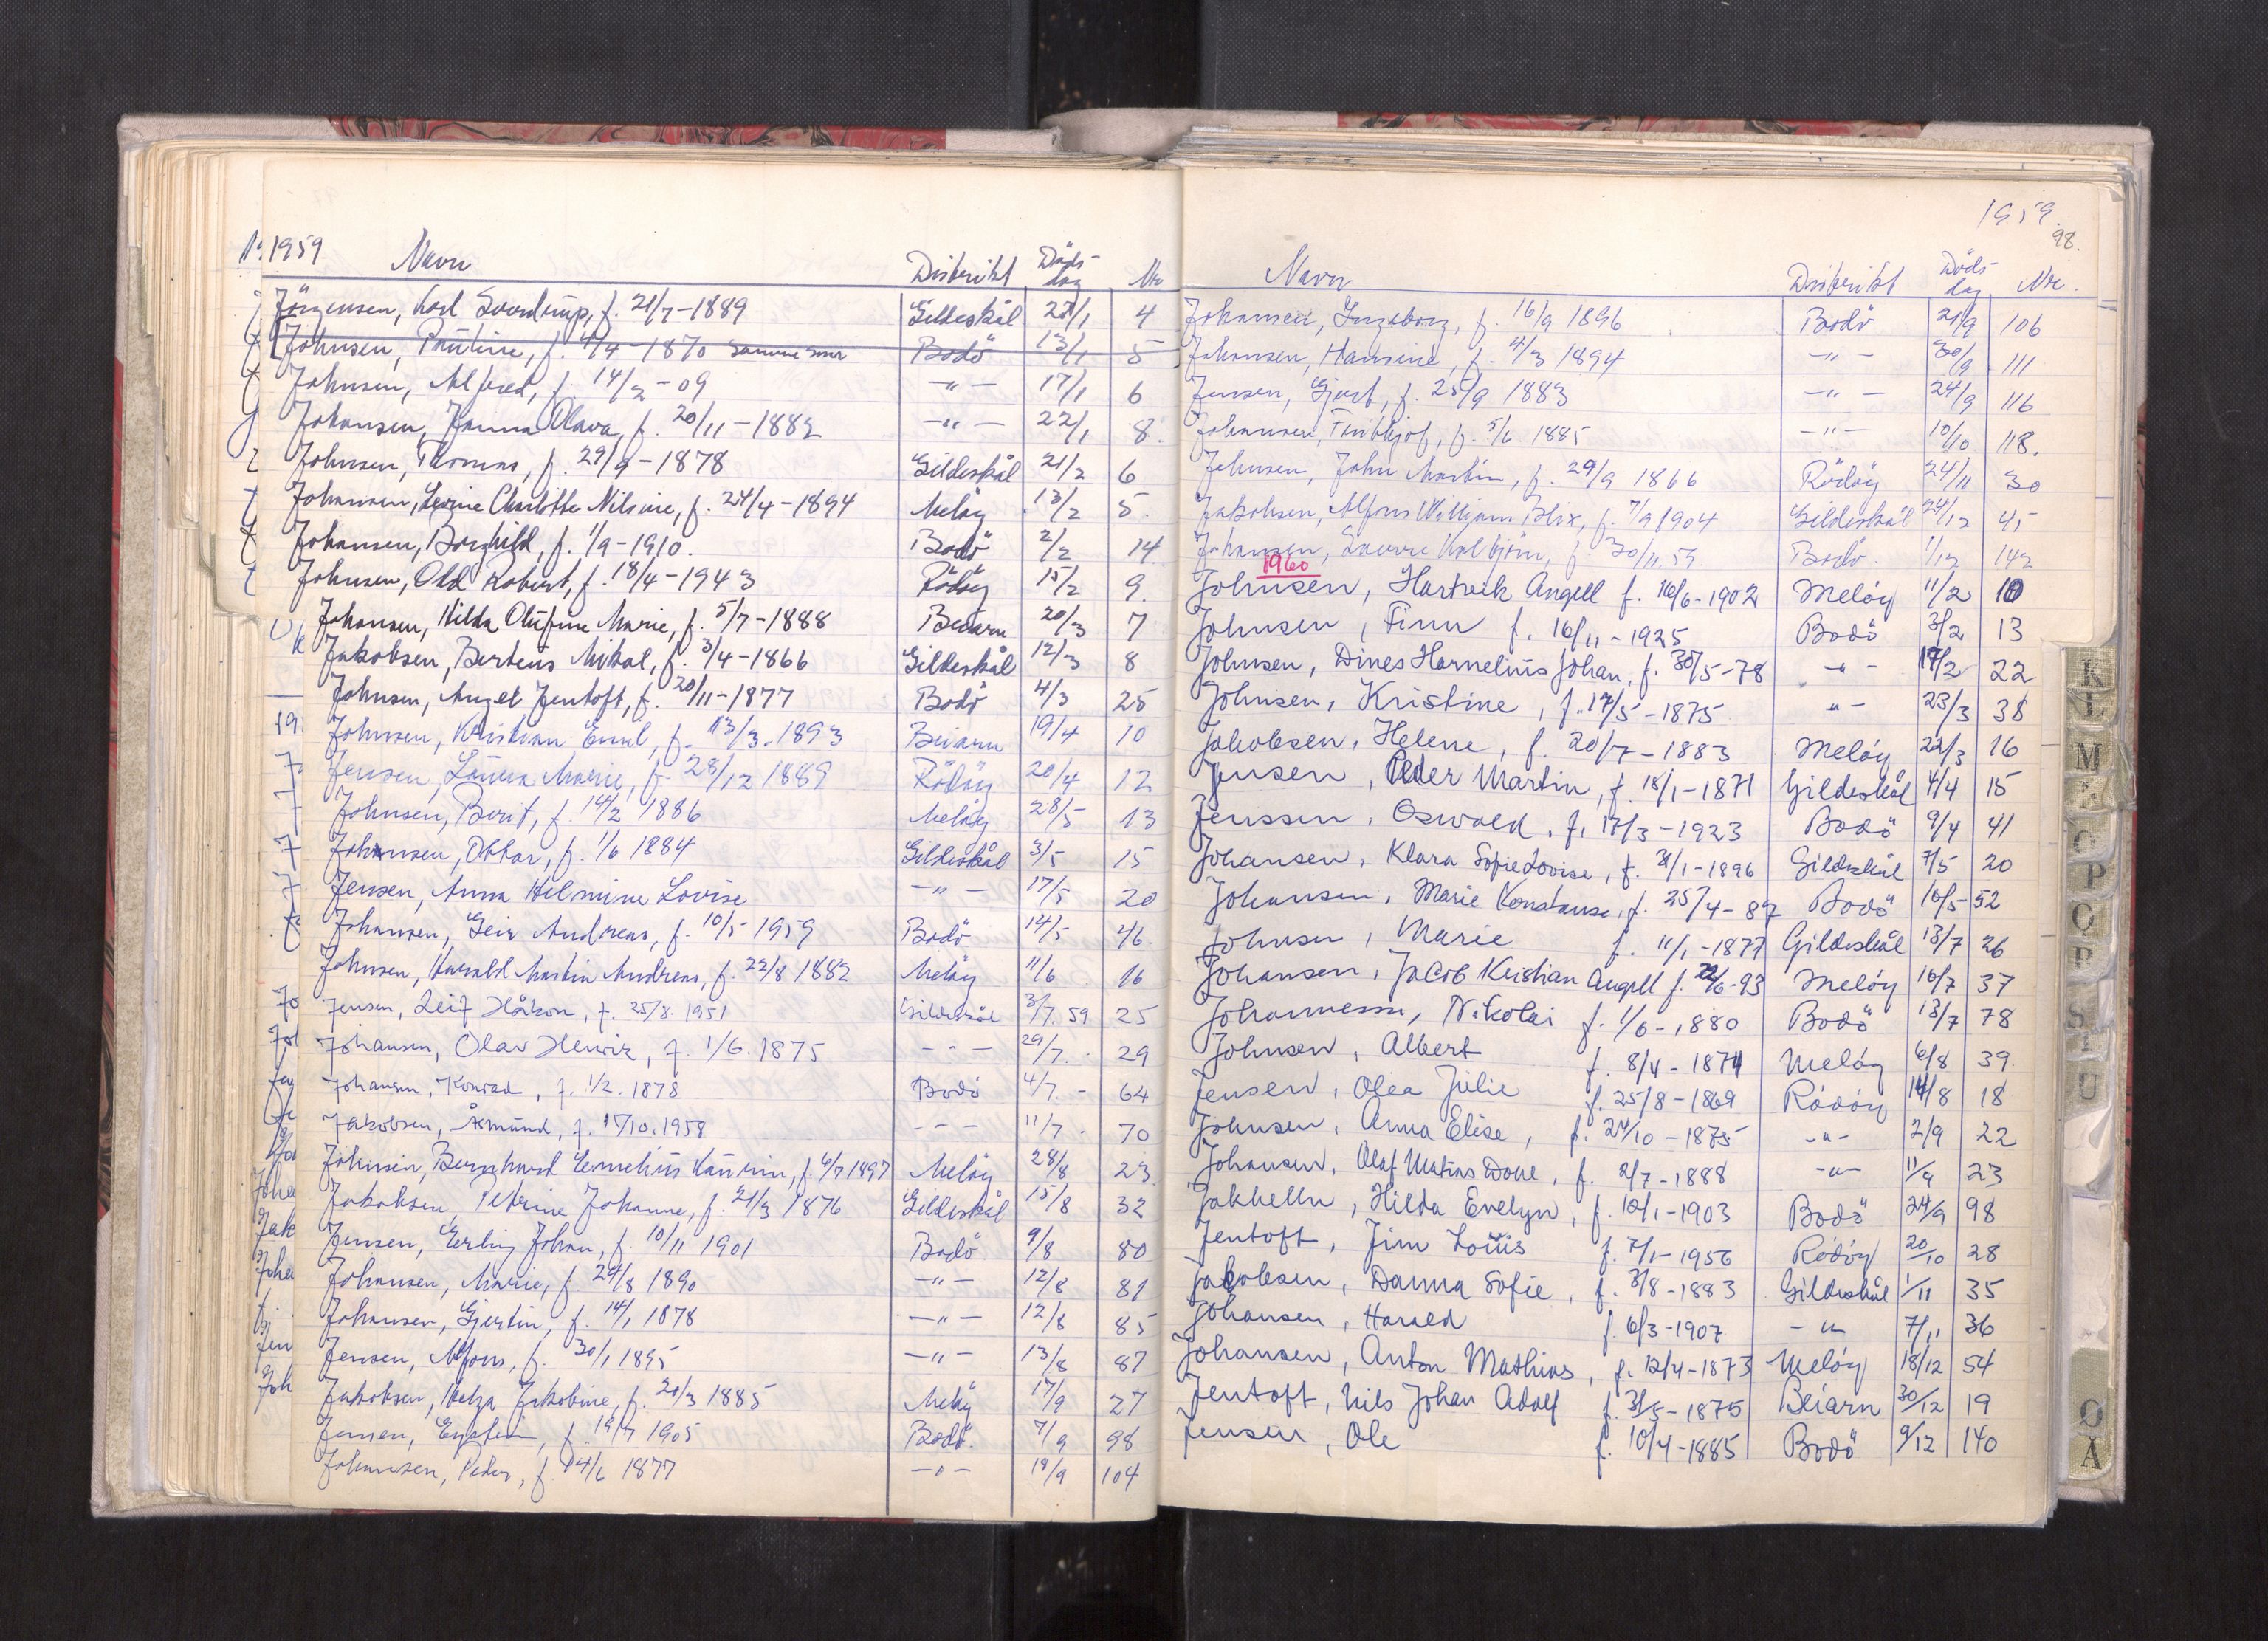 1959 Navn Distrikt Döds- dag Nr
Jörgensen, Karl Sverdrup, f. 21/7-1889 Gildeskål 23/1 4
Johnsen, Pauline, f. 4/4-1870 Bodö 13/1 5
Johnsen, Alfred, f. 14/2-09 -"- 17/1 6
Johansen, Janna Olava, f. 20/11-1882 -"- 22/1 8.
Johnsen, Thomas, f. 29/9-1878 Gildeskål 21/2 6
Johansen, Charlotte Nilsine, f. 24/4-1894 Melöy 13/2 5.
Johansen, Borghild, f. 1/9-1910. Bodö 2/2 14
Johnsen, Odd Robert, f. 18/4-1943 Rödöy 15/2 9.
Johansen, Hilda Olufine Marie, f. 5/7-1888 Beiarn 20/3 7
Jakobsen, Berteus Mikal, f. 3/4-1866 Gildeskål 12/3 8
Johnsen, Angel Jentoft, f. 20/11-1877 Bodö 4/3 25
Johnsen, Kristian Emil, f. 13/3.1893 Beiarn 19/4 10
Jensen, Laura Marie, f. 28/12 1889 Rödöy 20/4 12
Johnsen, Berit, f. 14/2 1886 Melöy 28/5 13
Johnsen, Ottar, f. 1/6 1884 Gildeskål 3/5 15
Jensen, Anna Hilmine Lovise -"- 17/5 20
Johansen, Geir Andreas, f. 10/5-1959 Bodö 14/5 46.
Johnsen, Harald Martin Andreas, f. 22/8 1882 Melöy 11/6 16
Jensen, Leif Håkon, f. 25/8.1951 Gildeskål 3/7.59 25
Johansen, Olav Henrik, f. 1/6.1875 - - - 29/7.- 29
Johansen, Konrad, f. 1/2.1878 Bodö 4/7.- 64
Jakobsen, Åsmund, f. 17/10.1958 - - - 11/7 - 70
Johnsen, Bernhard Cornelius f. 4/7 1897 Melöy 28/8 23
Jakobsen, Petrine Johanne, f. 21/3 1876 Gildeskål 15/8 32
Jensen, Erling Johan, f. 10/11 1901 Bodö 9/8 80
Johansen, Marie, f. 24/8 1890 -"- 12/8 81
Johansen, Gjertin, f. 14/1 1878 -"- 12/8 85
Jensen, Alfons, f. 30/1 1895 -"- 13/8 87
Jakobsen, Helga Jakobine, f. 20/3 1885 Melöy 17/9 27
Jensen, Eystein, f. 19/7 1905 Bodö. 7/9 98
Johansen, Peder, f. 14/6 1877 -"- 18/9 104
1959.
98.
Navn Distrikt Döds- dag Nr.
Johansen, Ingeborg, f. 16/9 1896 Bodö 21/9 106
Johansen, Hansine, f. 4/3 1894 -"- 30/9 111
Jensen, Gjert, f. 25/9 1883 -"- 24/9 116
Johansen, f. 5/6 1885 -"- 10/10 118.
Johnsen, John Martin, f. 29/9 1866 Rödöy 24/11 30
Jakobsen, Alfons William Blix, f. 7/9 1904 Gildeskål 24/12 45
Johansen, Sverre Kolbjörn, f 30/11.59 Bodö. 1/12 142
1960
Johnsen, Hartvik Angell f. 16/6-1902 Melöy 11/2 10
Johnsen, Finn f. 16/11-1925 Bodö 3/2 13
Johnsen, Dines Hornelius Johan, f. 30/5-78 -"- 17/2 22
Johnsen, Kristine, f. 17/5-1875 -"- 23/3 38
Jakobsen, Helene, f. 20/7-1883 Melöy 22/3 16
Jensen, Peder Martin, f. 18/1-1871 Gildeskål 4/4 15
Jenssen, Oswald, f. 17/3-1923 Bodö 9/4 41
Johansen, Klara Sofie Lovise, f. 31/1-1896 Gildeskål 7/5 20
Johansen, Marie Konstanse, f. 25/4-87 Bodö 16/5 52
Johnsen, Marie f. 11/1-1877 Gildeskål 13/7 26
Johansen, Jacob Kristian Angell f. 22/6-93 Melöy 16/7 37
Johannessen, Nikolai f. 1/6-1880 Bodö 13/7 78
Johnsen, Albert f. 8/4-1874 Melöy 6/8 39
Jensen, Olea Julie f. 25/8-1869 Rödöy 14/8 18
Johnsen, Anna Elise, f. 24/10-1875 -"- 2/9 22
Johansen, Olaf Matias Done, f. 2/7-1888 -"- 11/9 23
Jakhelln, Hilda Evelyn, f. 12/1-1903 Bodö 24/9 98
Jentoft, Jim Louis f. 7/1-1956 Rödöy 20/10 28
Jakobsen, Danna Sofie, f. 3/8-1883 Gildeskål 1/11 35
Johansen, Harald f. 6/3-1907 -"- 7/11 36
Johansen, Anton Mathias, f. 12/4-1873 Melöy 18/12 54
Jentoft, Nils Johan Adolf f. 31/5-1875 Beiarn 30/12 19
Jensen, Ole f. 10/4-1885 Bodö 9/12 140
K
L
M
N
O
P
Q
R
S
T
U
Ø
Å